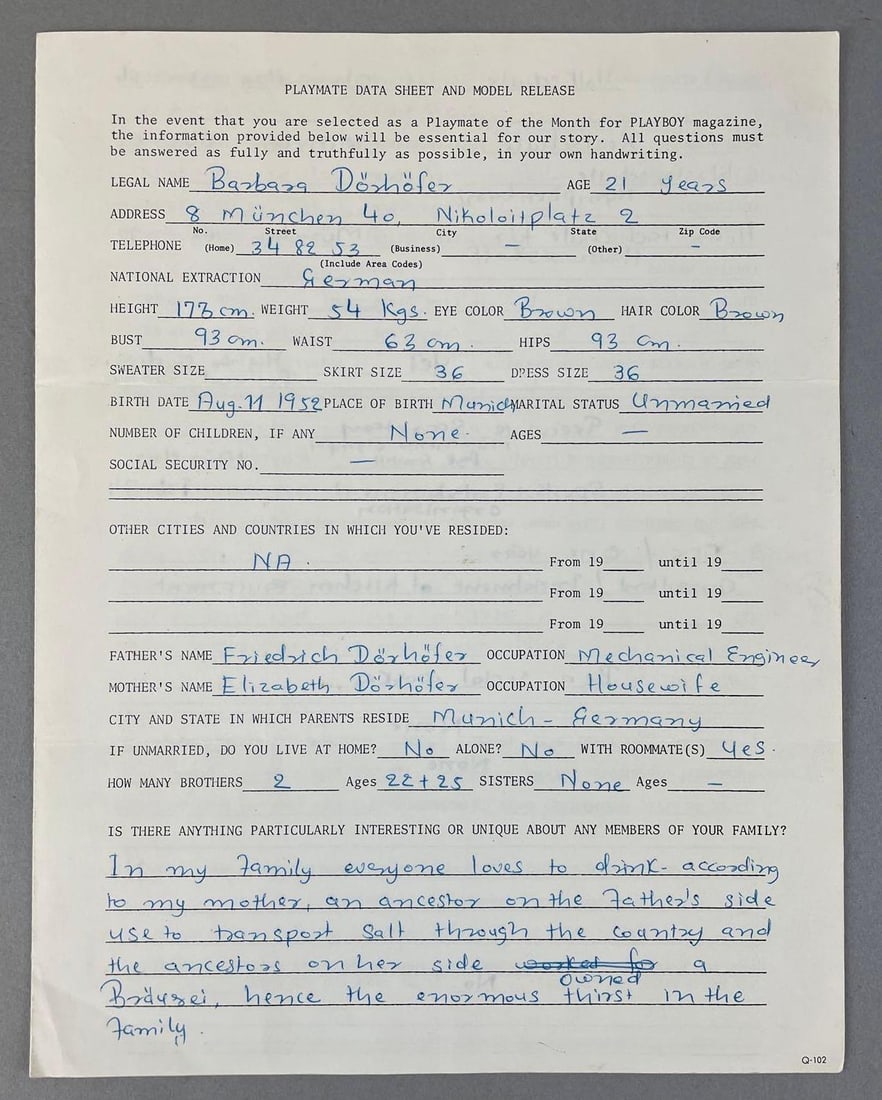 PLAYMATE DATA SHEET AND MODEL RELEASE
In the event that you are selected as a Playmate of the Month for PLAYBOY magazine,
the information provided below will be essential for our story. All questions must
be answered as fully and truthfully as possible, in your own handwriting.
LEGAL NAME Barbara Dörhöfer AGE 21 years
ADDRESS 8 München 40, Nikoloitplatz 2
No. Street City State Zip Code
TELEPHONE (Home) 34 82 53 (Business) — (Other) —
(Include Area Codes)
NATIONAL EXTRACTION German
HEIGHT 173 cm. WEIGHT 54 Kgs. EYE COLOR Brown HAIR COLOR Brown
BUST 93 cm. WAIST 63 cm. HIPS 93 cm.
SWEATER SIZE SKIRT SIZE 36 DRESS SIZE 36
BIRTH DATE Aug. 11 1952 PLACE OF BIRTH Munich MARITAL STATUS Unmarried
NUMBER OF CHILDREN, IF ANY None. AGES —
SOCIAL SECURITY NO. —
OTHER CITIES AND COUNTRIES IN WHICH YOU'VE RESIDED:
NA. From 19 until 19
From 19 until 19
From 19 until 19
FATHER'S NAME Friedrich Dörhöfer OCCUPATION Mechanical Engineer
MOTHER'S NAME Elizabeth Dörhöfer OCCUPATION Housewife
CITY AND STATE IN WHICH PARENTS RESIDE Munich - Germany
IF UNMARRIED, DO YOU LIVE AT HOME? No ALONE? No WITH ROOMMATE(S) Yes.
HOW MANY BROTHERS 2 Ages 22 + 25 SISTERS None Ages —
IS THERE ANYTHING PARTICULARLY INTERESTING OR UNIQUE ABOUT ANY MEMBERS OF YOUR FAMILY?
In my Family everyone loves to drink - according
to my mother, an ancestor on the Father's side
use to transport salt through the country and
the ancestors on her side worked for a
owned
Bräurei, hence the enormous thirst in the
Family.
Q-102